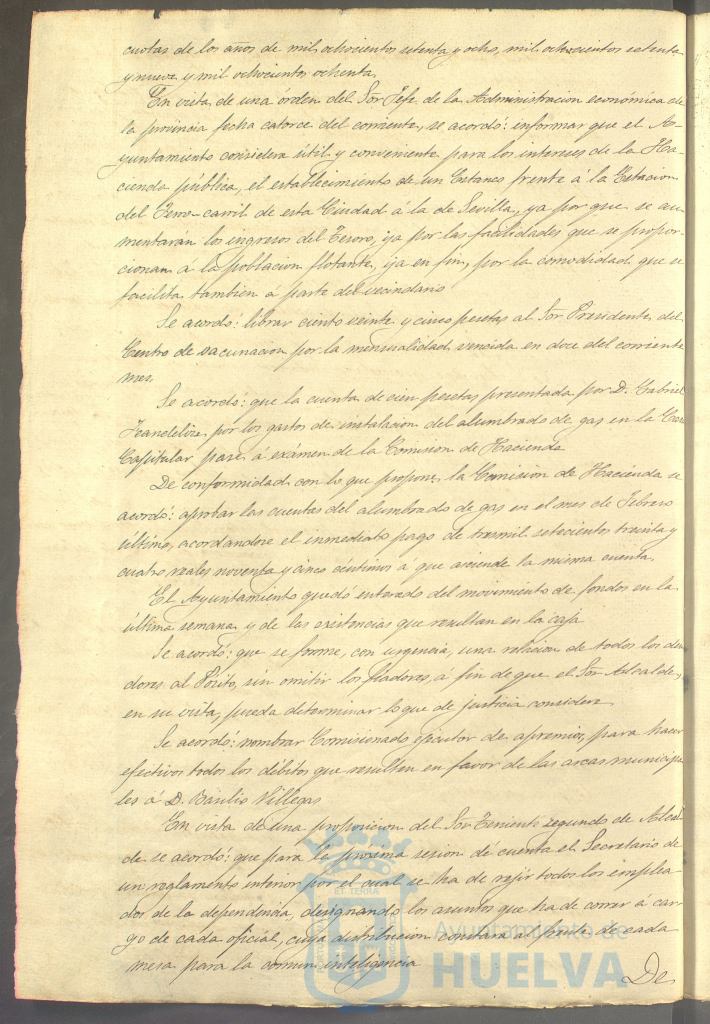 cuotas de los años de mil ochocientos setenta y ocho, mil ochocientos setenta
y nueve y mil ochocientos ochenta.
En vista de una órden del Sor Jefe de la Administracion económica de
la provincia fecha catorce del corriente, se acordó: informar que el A-
yuntamiento considera útil y conveniente para los intereses de la Ha-
cienda pública, el establecimiento de un Estanco frente á la Estacion
del Ferro-carril de esta Ciudad á la de Sevilla, ya por que se au
mentarán los ingresos del Tesoro, ya por las facilidades que se propor-
cionan á la poblacion flotante, ya en fin, por la comodidad que se
facilita tambien á parte del vecindario
Se acordó: librar ciento veinte y cinco pesetas al Sor Presidente del
Centro de vacunacion por la mensualidad vencida en doce del corriente
mes.
Se acordó: que la cuenta de cien pesetas presentada por D. Gabriel
Jeandelize, por los gastos de instalacion del alumbrado de gas en la Casa
Capitular pase á exámen de la Comision de Hacienda
De conformidad con lo que propone la Comision de Hacienda se
acordó: aprobar las cuentas del alumbrado de gas en el mes de Febrero
último, acordandose el inmediato pago de tresmil setecientos treinta y
cuatro reales noventa y cinco céntimos a que asciende la misma cuenta.
El Ayuntamiento quedó enterado del movimiento de fondos en la
última semana y de las existencias que resultan en la caja
Se acordó: que se forme, con urgencia, una relacion de todos los deu
dores al Pósito, sin omitir los fiadores, á fin de que el Sor Alcalde,
en su vista, pueda determinar lo que de justicia considere
Se acordó: nombrar Comisionado ejecutor de apremios, para hacer
efectivos todos los débitos que resulten en favor de las arcas municipa
les á D. Basilio Villegas
En vista de una proposicion del Sor Teniente segundo de Alcal
de se acordó: que para la próxima sesion dé cuenta el Secretario de
un reglamento interior por el cual se ha de rejir todos los emplea-
dos de la dependencia, designando los asuntos que ha de correr á car-
go de cada oficial, cuya distribucion constará al frente de cada
mesa para la comun inteligencia
De
ET TERRA
Ayuntamiento de
HUELVA